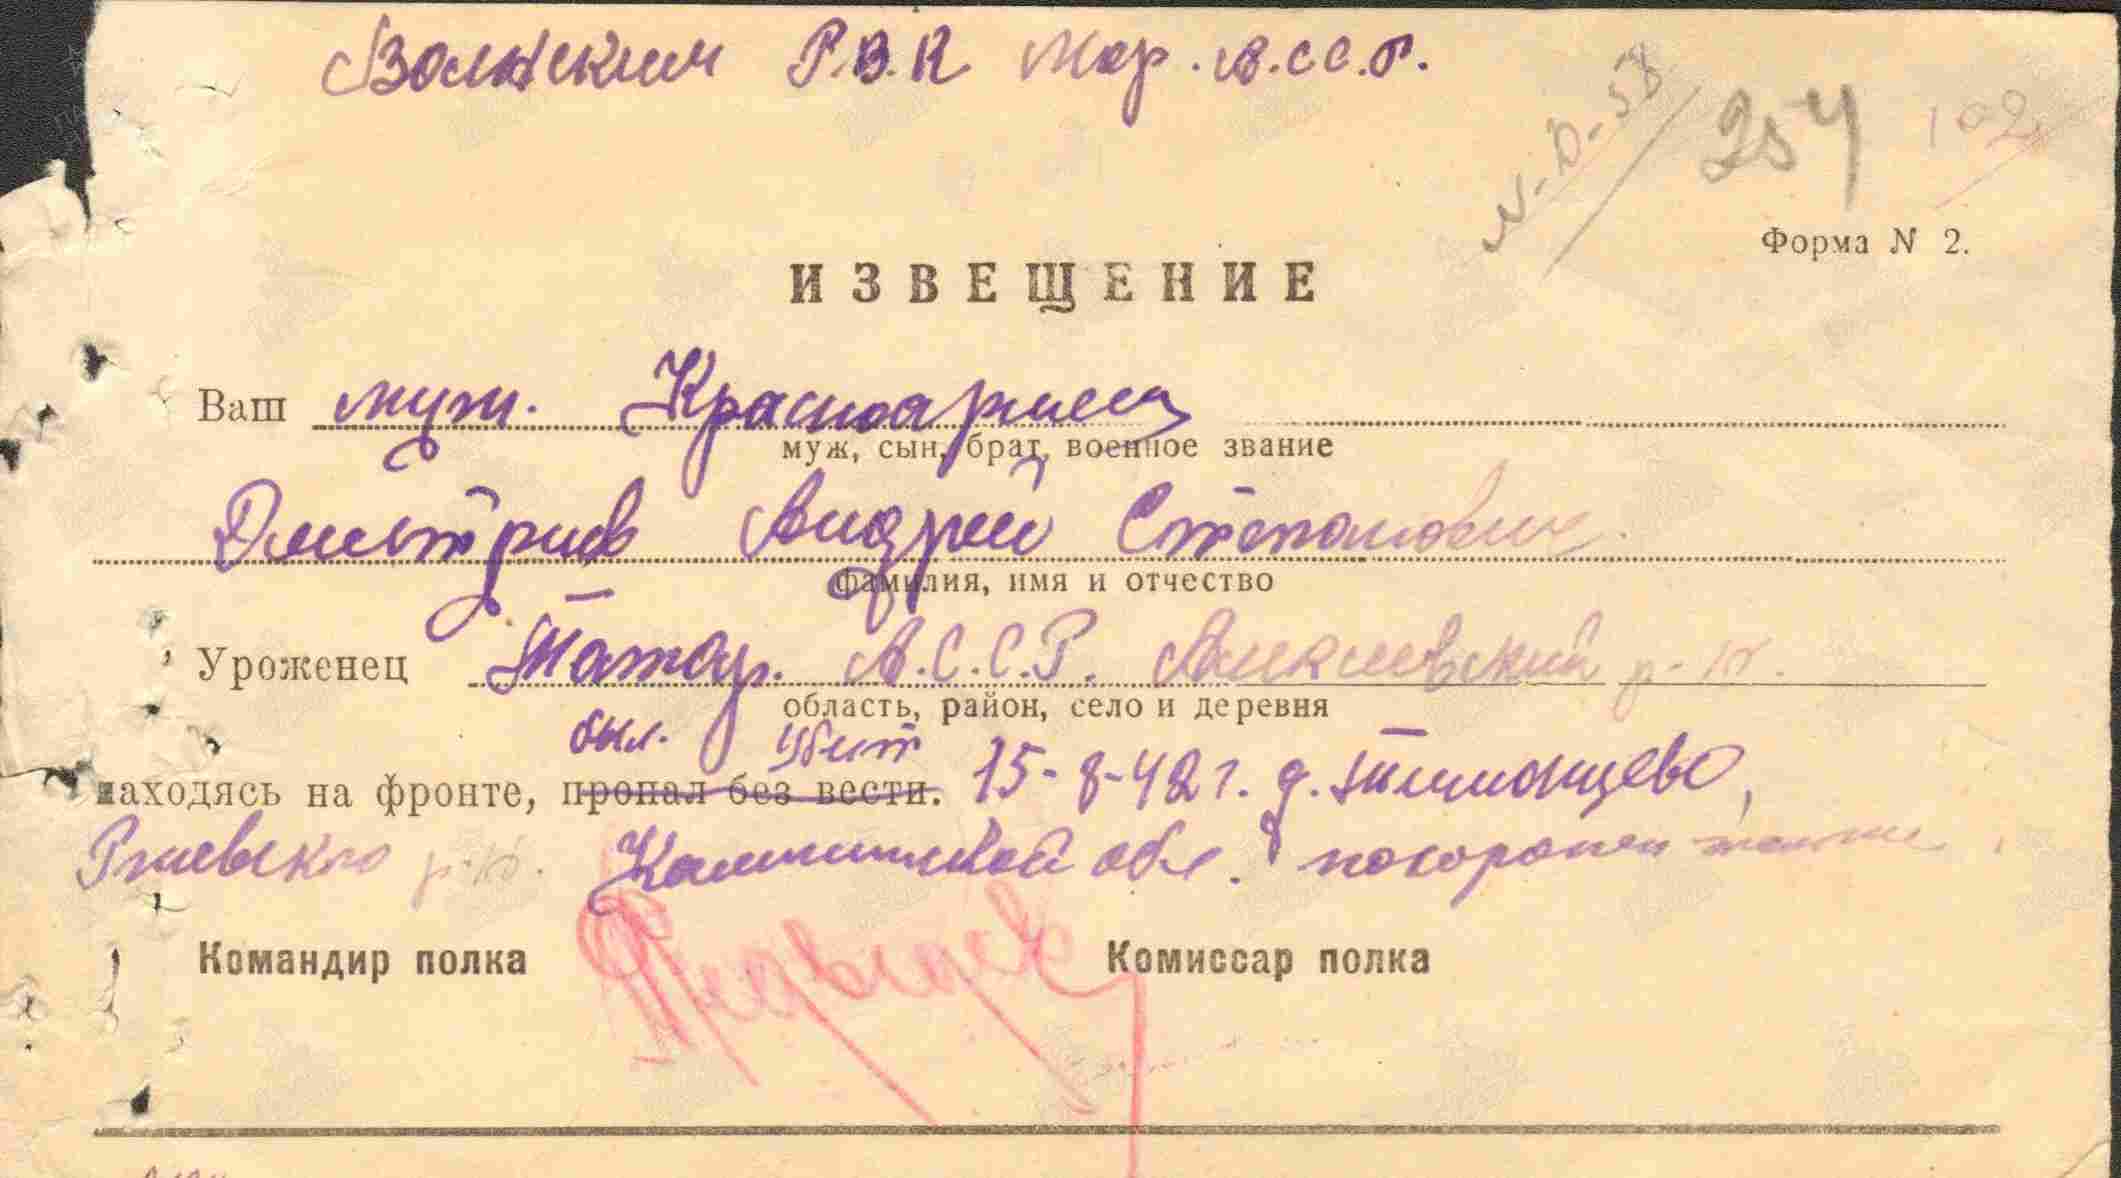 Волжским Р.В.К Мар. А.С.С.Р.
254
102
Форма N 2.
ИЗВЕЩЕНИЕ
Ваш муж. Красноармеец
муж, сын, брат, военное звание
Дмитриев Андрей Степанович
фамилия, имя и отчество
Уроженец Татар. А.С.С.Р. Алексеевский р-н.
область, район, село и деревня
был. убит
находясь на фронте, пропал без вести. 15-8-42 г. д. Тимонцево,
Ржевского р-н. Калининской обл. похоронен там же.
Командир полка Комиссар полка